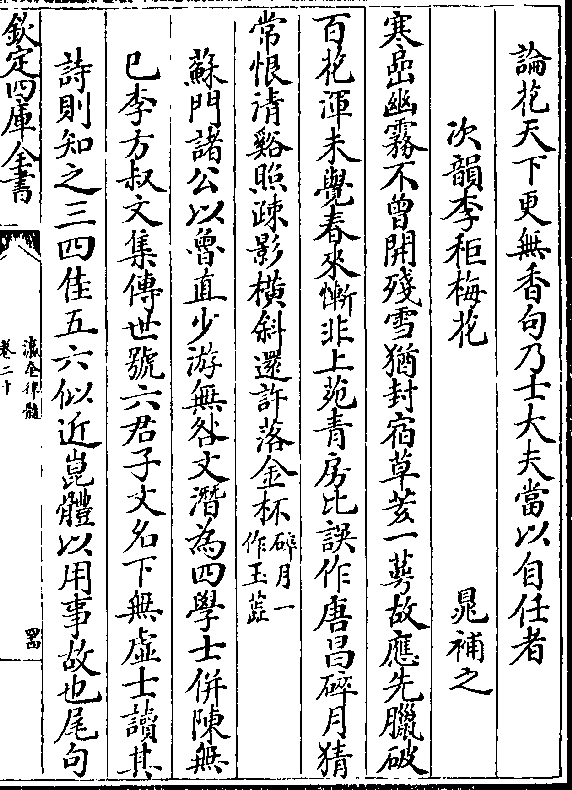 論花天下更無香句乃士大夫當以自任者
次韻李秬梅花 晁補之
寒嵓幽霧不曾開殘雪猶封宿草荄一蕚故應先臘破
百花渾未覺春來慚非上苑青房比誤作唐昌碎月猜
常恨清谿照疎影橫斜還許落金杯碎月一作玉蘂
蘇門諸公以魯直少游無咎文潛為四學士併陳無
已李方叔文集傳世號六君子文名下無虛士讀其
詩則知之三四佳五六似近崑體以用事故也尾句
欽定四庫全書
瀛奎律髓
卷二十